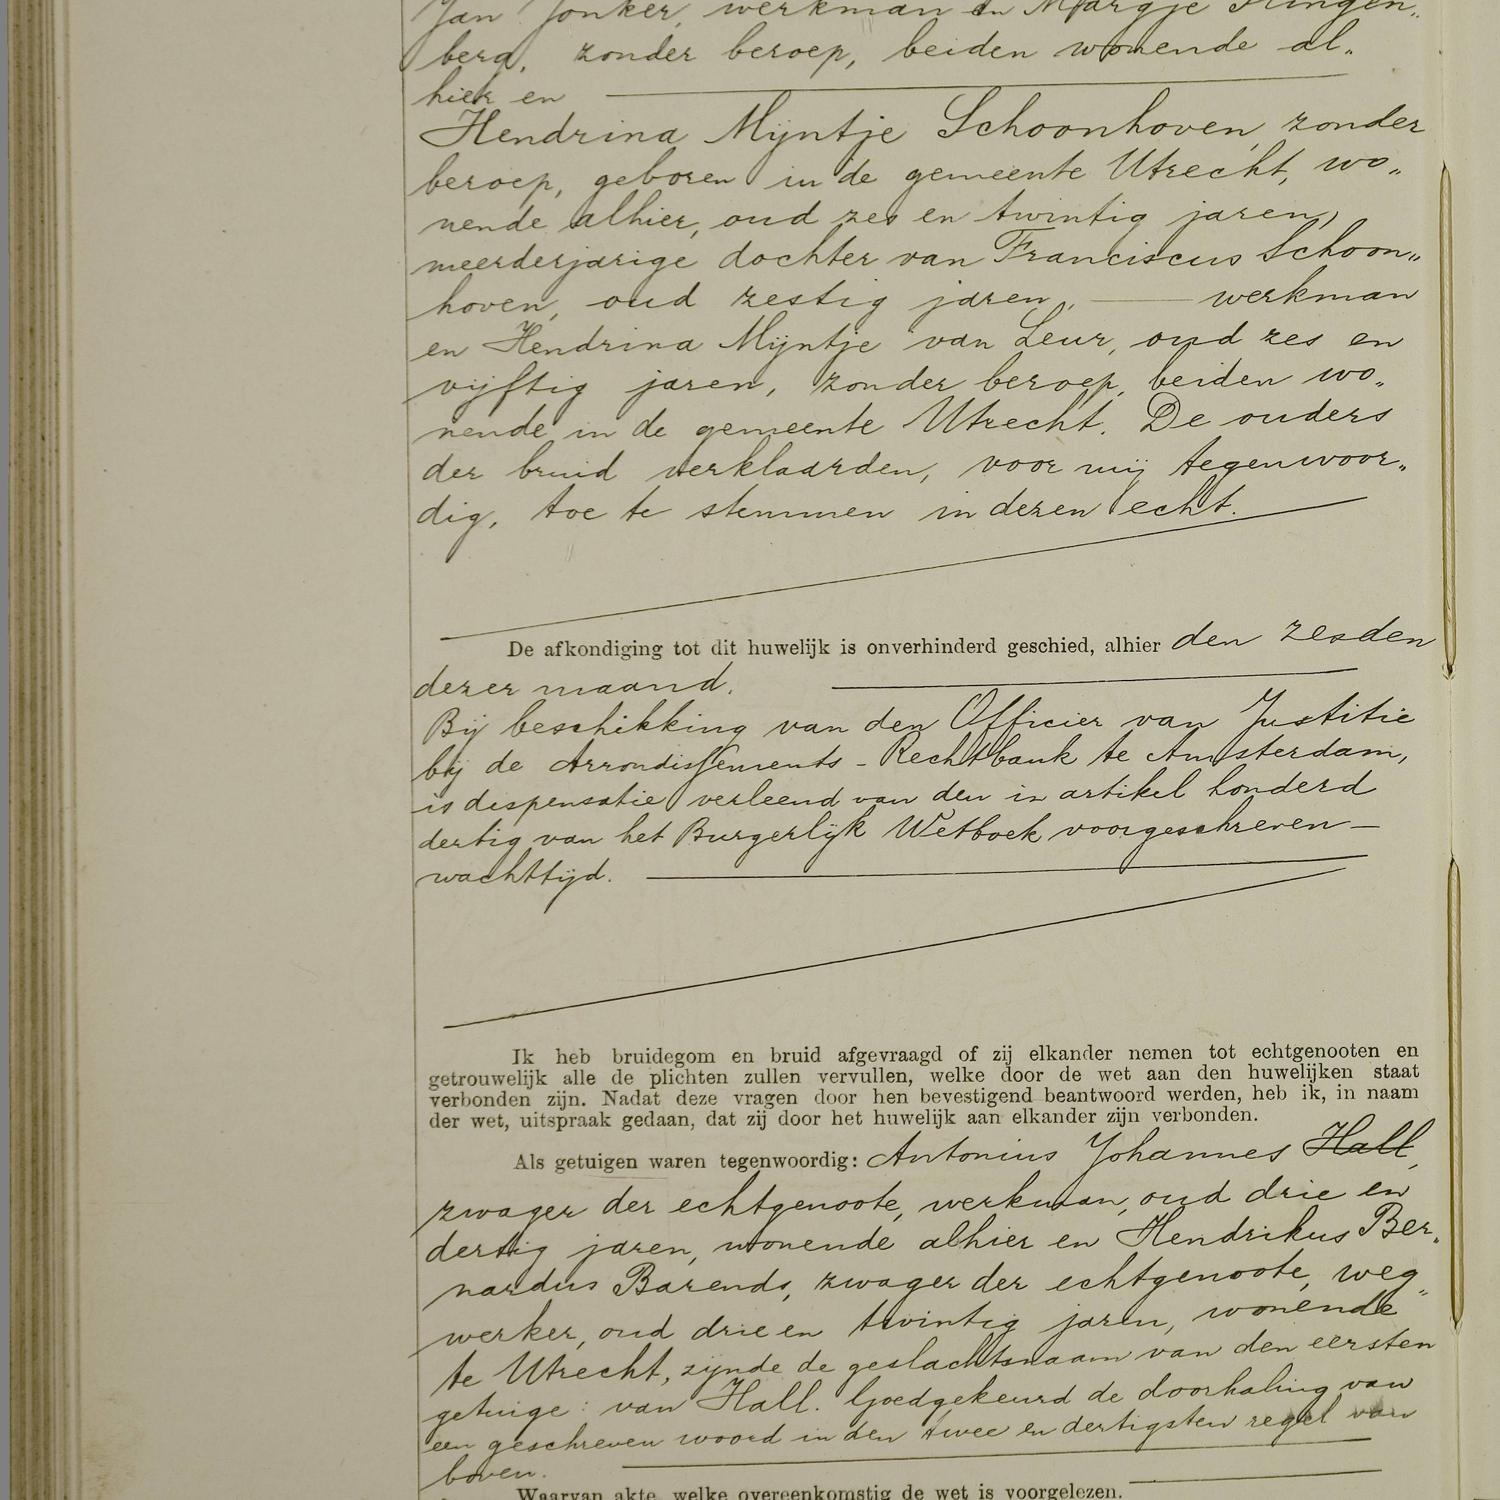 Jan Jonker, werkman en Margje Klingen„
berg, zonder beroep, beiden wonende al„
hier en
Hendrina Mijntje Schoonhoven, zonder
beroep, geboren in de gemeente Utrecht, wo„
nende alhier, oud zes en twintig jaren,
meerderjarige dochter van Franciscus Schoon„
hoven, oud zestig jaren, — werkman
en Hendrina Mijntje van Leur, oud zes en
vijftig jaren, zonder beroep, beiden wo„
nende in de gemeente Utrecht. De ouders
der bruid verklaarden, voor mij tegenwoor„
dig, toe te stemmen in dezen echt.
De afkondiging tot dit huwelijk is onverhinderd geschied, alhier den zesden
dezer maand.
Bij beschikking van den Officier van Justitie
bij de Arrondissements - Rechtbank te Amsterdam,
is dispensatie verleend van den in artikel honderd
dertig van het Burgerlijk Wetboek voorgeschreven —
wachttijd.
Ik heb bruidegom en bruid afgevraagd of zij elkander nemen tot echtgenooten en
getrouwelijk alle de plichten zullen vervullen, welke door de wet aan den huwelijken staat
verbonden zijn. Nadat deze vragen door hen bevestigend beantwoord werden, heb ik, in naam
der wet, uitspraak gedaan, dat zij door het huwelijk aan elkander zijn verbonden.
Als getuigen waren tegenwoordig: Antonius Johannes Hall,
zwager der echtgenoote, werkman, oud drie en
dertig jaren, wonende alhier en Hendrikus Ber„
nardus Barends, zwager der echtgenoote, weg„
werker, oud drie en twintig jaren, wonende
te Utrecht, zijnde de geslachtsnaam van den eersten
getuige: van Hall. Goedgekeurd de doorhaling van
een geschreven woord in den twee en dertigsten regel van
boven.
Waarvan akte, welke overeenkomstig de wet is voorgelezen.